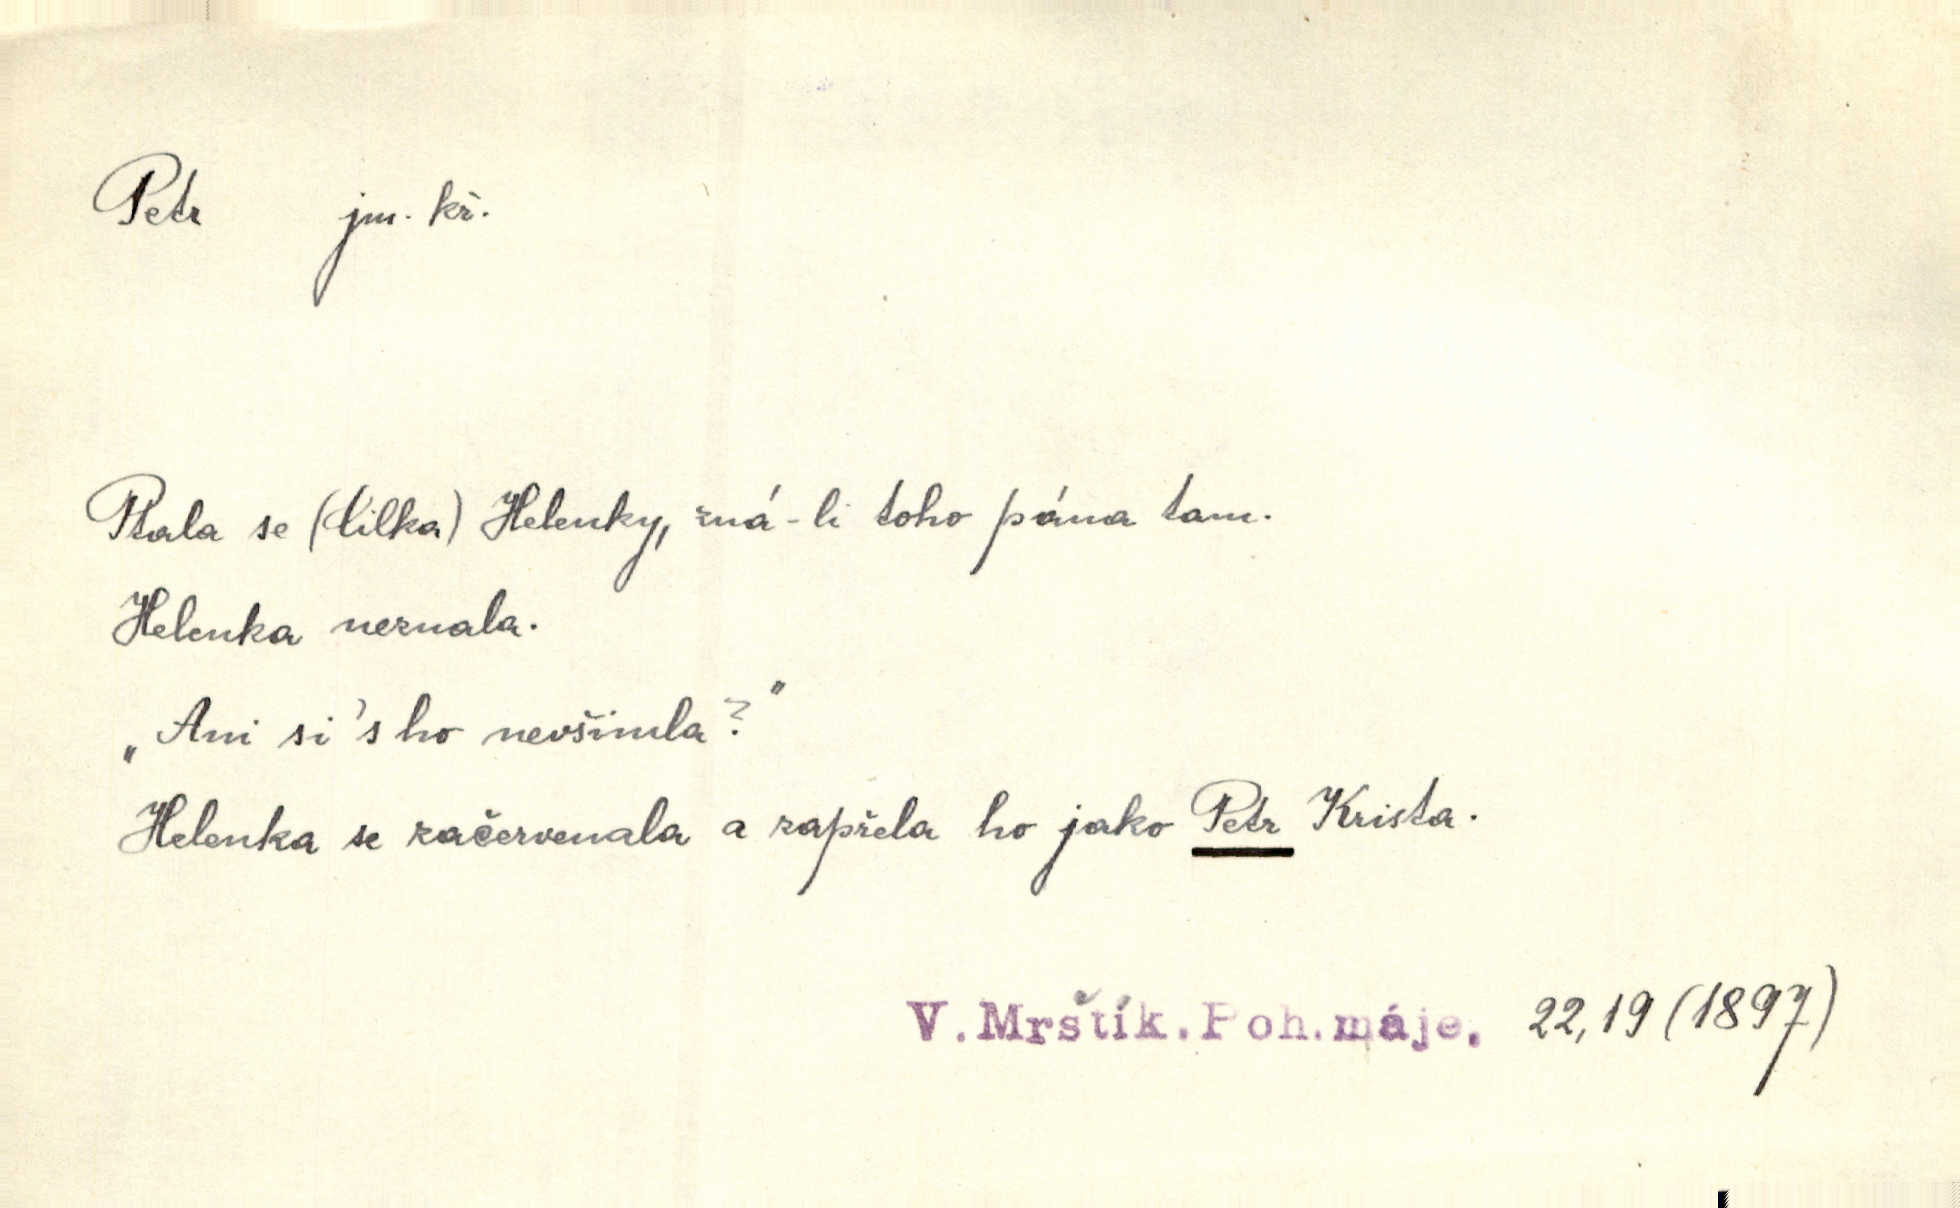 Petr jm. kř.
Ptala se (Lilka) Helenky, zná-li toho pána tam.
Helenka neznala.
„Ani si's ho nevšimla?"
Helenka se začervenala a zapřela ho jako Petr Krista.
V. Mrštík. Poh. máje, 22, 19 (1897)